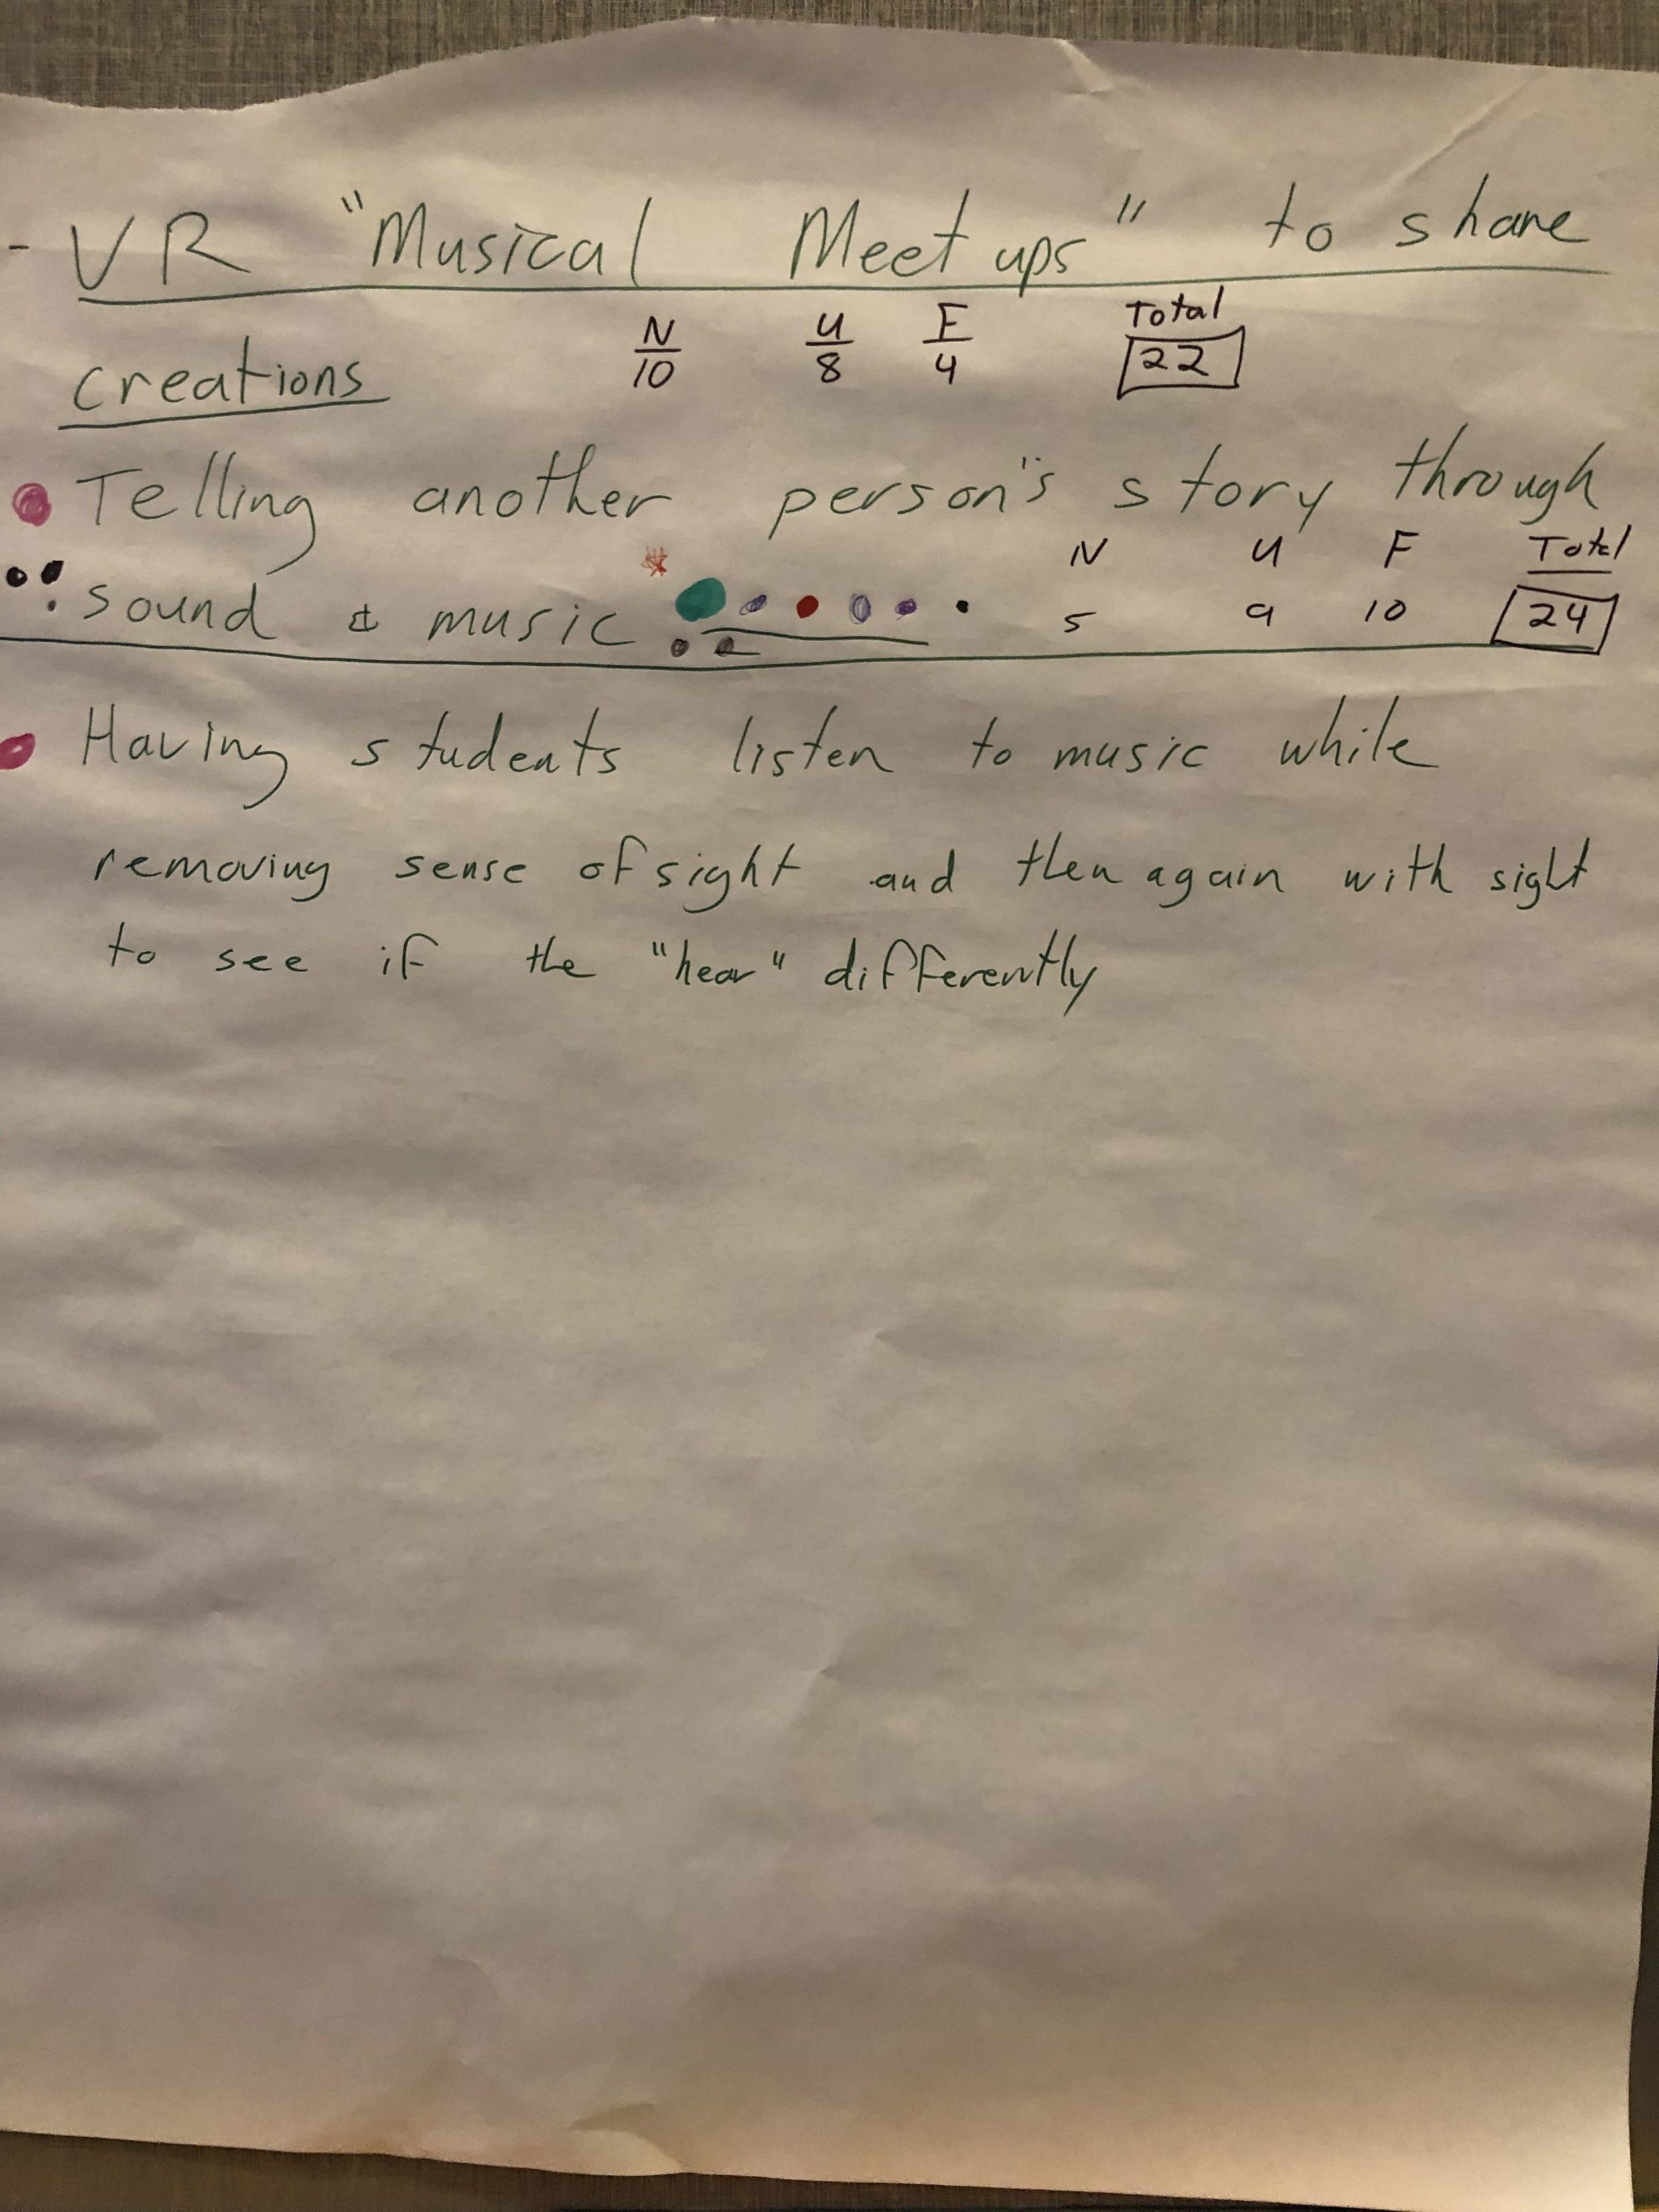 - VR "Musical Meet ups" to share
N U F Total
creations 10 8 4 22
Telling another person's story through
N U F Total
sound & music 5 9 10 24
Having students listen to music while
removing sense of sight and then again with sight
to see if the "hear" differently